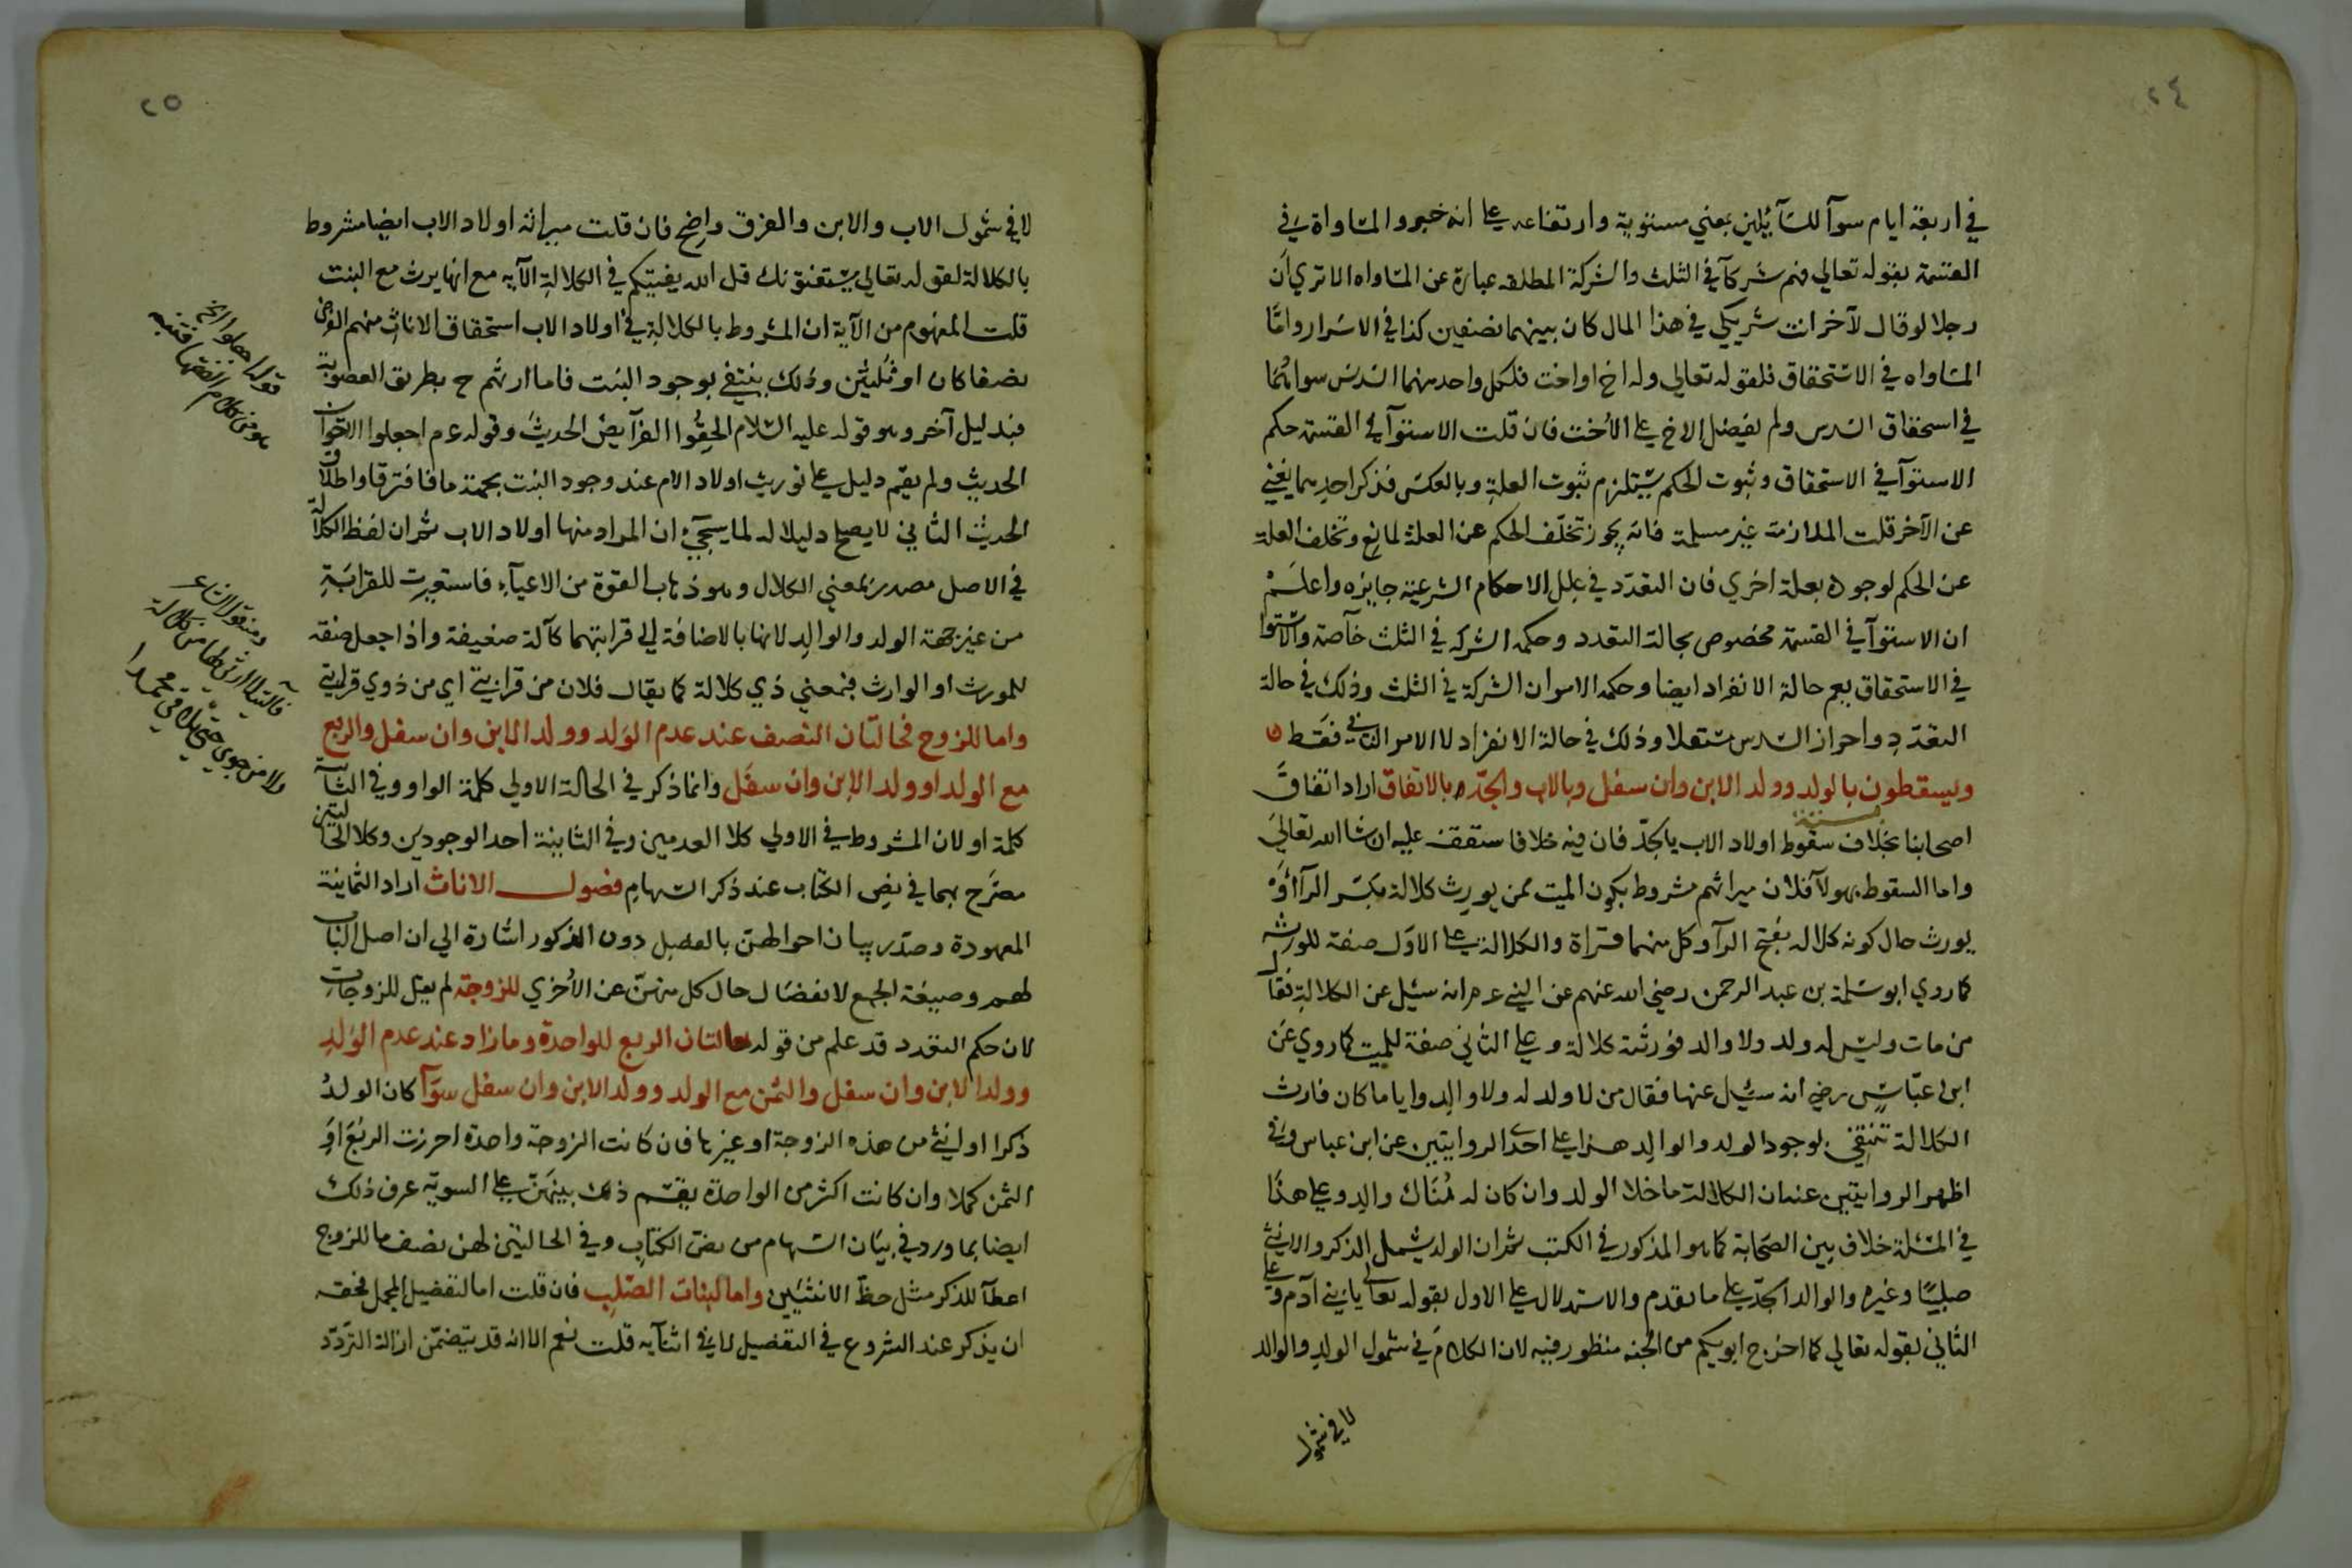 ٢٤
في اربعة ايام سوآ للسآئلين بمعني مستوية وارتفاعه علي انه خبر والمساواة في
القسمة بقوله تعالي فهم شركآ في الثلث والشركة المطلقه عبارة عن المساواه الا تري ان
رجلا لو قال لآخر انت شريكي في هذا المال كان بينهما نصفين كذا في الاسرار واما
المساواه في الاستحقاق فلقوله تعالي وله اخ او اخت فلكل واحد منهما السدس سوا
في استحقاق السدس ولم يفضل الاخ علي الأخت فان قلت الاستوآ في القسمة حكم
الاستوآ في الاستحقاق وثبوت الحكم يستلزم ثبوت العلة وبالعكس فذكر احدهما يغني
عن الآخر قلت الملازمة غير مسلمة فانه يجوز تخلف الحكم عن العلة لمانع وتخلف العلة
عن الحكم لوجوده بعلة اخري فان التعدد في علل الاحكام الشرعية جايزه واعلم
ان الاستوآ في القسمة مخصوص بحالة التعدد وحكمه الشركه في الثلث خاصة والاستوا
في الاستحقاق يعم حالة الانفراد ايضا وحكمه الامران الشركة في الثلث وذلك في حالة
التعدد واحراز السدس مستقلا وذلك في حالة الانفراد لا الامر الثاني فقط
ويسقطون بالولد وولد الابن وان سفل وبالاب والجد بالاتفاق اراد اتفاق
اصحابنا بخلاف سقوط اولاد الاب بالجد فان فيه خلافا ستقف عليه ان شا الله تعالي
واما السقوط بهولآ فلان ميراثهم مشروط بكون الميت ممن يورث كلالة بكسر الرآ او
يورث حال كونه كلاله بفتح الرآ وكل منهما قراة والكلالة علي الاول صفة للورثه
كما روي ابو سلمة بن عبد الرحمن رضي الله عنهم عن النبي عم انه سئل عن الكلالة فقال
من مات وليس له ولد ولا والد فورثته كلالة وعلي الثاني صفة للميت كما روي عن
ابن عباس رضي انه سئل عنها فقال من لا ولد له ولا والد واياما كان فارث
الكلالة تنتفي بوجود الولد والوالد هذا علي احدي الروايتين عن ابن عباس وفي
اظهر الروايتين عنه ان الكلالة ما خلا الولد وان كان له هناك والد وعلي هذا
في المسئلة خلاف بين الصحابة كما هو المذكور في الكتب ثم ان الولد يشمل الذكر والانثي
صلبيا وغيره والوالد الجد علي ما تقدم والاستدلال علي الاول بقوله تعالي يا بني آدم وعلي
الثاني بقوله تعالي كما اخرج ابويكم من الجنه منظور فيه لان الكلام في شمول الولد والوالد
لا في شمول
٢٥
لا في شمول الاب والابن والفرق واضح فان قلت ميراث اولاد الاب ايضا مشروط
بالكلالة لقوله تعالي يستفتونك قل الله يفتيكم في الكلالة الآيه مع انها يرث مع البنت
قلت المفهوم من الآية ان المشروط بالكلالة في اولاد الاب استحقاق الاناث منهم الفرض
نصفا كان او ثلثين وذلك ينتفي بوجود البنت فاما ارثهم ح بطريق العصوبة
فبدليل آخر وهو قوله عليه السلام الحقوا الفرآيض الحديث وقوله عم اجعلوا الاخوات
الحديث ولم يقم دليل علي توريث اولاد الام عند وجود البنت بجهة ما فافترقا واطلاق
الحديث الثاني لا يصح دليلا له لما سيجيء ان المراد منها اولاد الاب ثم ان لفظ الكلالة
في الاصل مصدر بمعني الكلال وهو ذهاب القوة من الاعيآء فاستعيرت للقرابة
من غير جهة الولد والوالد لانها بالاضافة الي قرابتهما كآلة ضعيفة واذا جعل صفة
للمورث او الوارث فبمعني ذي كلالة كما يقال فلان من قرابتي اي من ذوي قرابتي
واما للزوج فحالتان النصف عند عدم الولد وولد الابن وان سفل والربع
مع الولد او ولد الابن وان سفل وانما ذكر في الحالة الاولي كلمة الواو وفي الثانية
كلمة او لان المشروط في الاولي كلا العدمين وفي الثانية احد الوجودين وكلا الحالتين
مصرح بهما في نص الكتاب عند ذكر السهام فصول الاناث اراد الثمانية
المعهودة وصدر بيان احوالهن بالفصل دون الذكور اشارة الي ان اصل الباب
لهم وصيغة الجمع لانفصال حال كل منهن عن الأخري للزوجة لم يقل للزوجات
لان حكم التعدد قد علم من قوله حالتان الربع للواحدة وما زاد عند عدم الولد
وولد الابن وان سفل والثمن مع الولد وولد الابن وان سفل سوآ كان الولد
ذكرا او انثي من هذه الزوجة او غيرها فان كانت الزوجة واحدة احرزت الربع او
الثمن كملا وان كانت اكثر من الواحدة يقسم ذلك بينهن علي السوية عرف ذلك
ايضا بما ورد في بيان السهام من نص الكتاب وفي الحالتين لهن نصف ما للزوج
اعطآ للذكر مثل حظ الانثيين واما لبنات الصلب فان قلت اما لتفصيل المجمل فحقه
ان يذكر عند الشروع في التفصيل لا في اثنآيه قلت نعم الا انه قد يتضمن ازالة التردد
قوله اجعلوا الخ
هو من كلام الفقها فتنبه
ومنه قول الشاعر
فآليت لا ارثي لها من كلالة
ولا من وجي حتي تلاقي محمدا